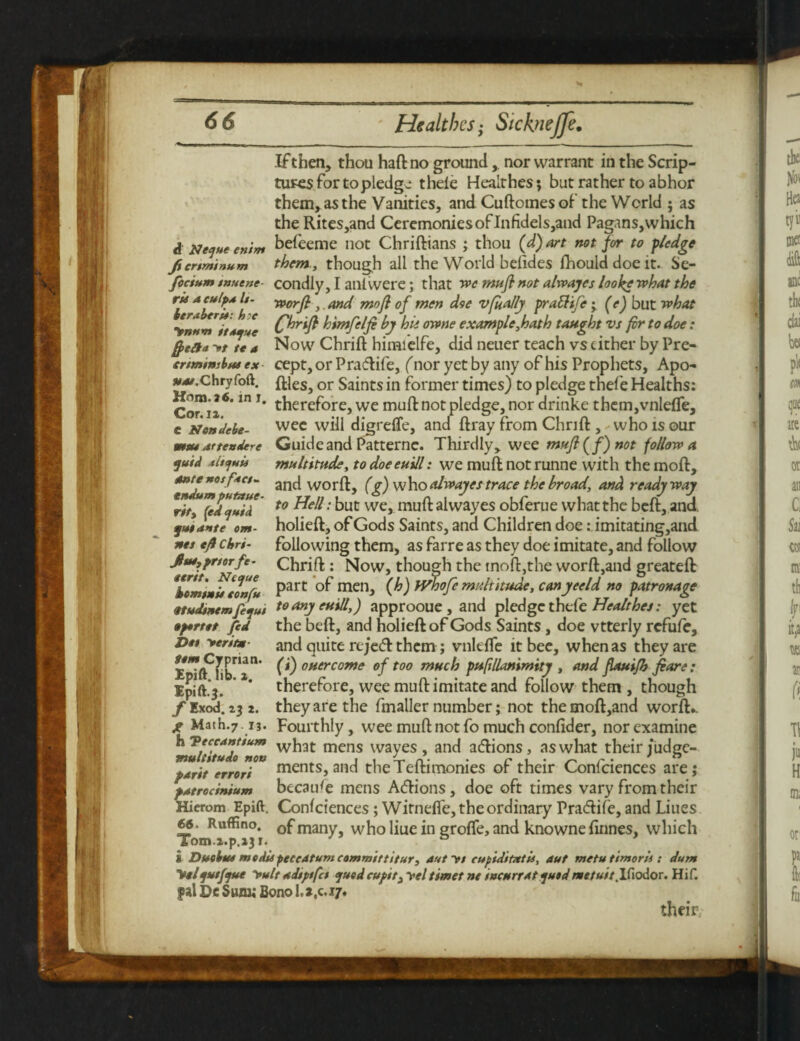 66 Healthes; Sicknesse.
If then, thou hast no ground, nor warrant in the Scrip-
tures for to pledge these Healthes; but rather to abhor
them, as the Vanities, and Customes of the World; as
the Rites, and Ceremonies of Infidels, and Pagans, which
beseeme not Christians; thou (d) art not for to pledge
them, though all the World besides should doe it. Se-
condly, I answere; that we must not alwayes looke what the
worst, and most of men doe vsually practise; (e) but what
Christ himselfe by his owne example, hath taught vs for to doe:
Now Christ himselfe, did neuer teach vs either by Pre-
cept, or Practise, (nor yet by any of his Prophets, Apo-
stles, or Saints in former times) to pledge these Healths:
therefore, we must not pledge, nor drinke them, vnlesse,
wee will digresse, and stray from Christ, who is our
Guide and Patterne. Thirdly, wee must (f) not follow a
multitude, to doe euill: we must not runne with the most,
and worst, (g) who alwayes trace the broad, and ready way
to Hell: but we, must alwayes obserue what the best, and
holiest, of Gods Saints, and Children doe: imitating, and
following them, as farre as they doe imitate, and follow
Christ: Now, though the most, the worst, and greatest
part of men, (h) Whose multitude, can yeeld no patronage
to any euill,) approoue, and pledge these Healthes: yet
the best, and holiest of Gods Saints, doe vtterly refuse,
and quite reject them; vnlesse it bee, when as they are
(i) ouercome of too much pusillanimity, and slauish feare:
therefore, wee must imitate and follow them, though
they are the smaller number; not the most, and worst.
Fourthly, wee must not so much consider, nor examine
what mens wayes, and actions, as what their judge-
ments, and the Testimonies of their Consciences are;
because mens Actions, doe oft times vary from their
Consciences; Witnesse, the ordinary Practise, and Liues
of many, who liue in grosse, and knowne sinnes, which
their
d Neque enim
si criminum
socium inuene-
ris a culpa li-
beraberis: hoc
vnum itaque
specta vt te a
criminibus ex-
uas. Chrysost.
Hom. 26. in 1.
Cor. 12.
e Non debe-
mus attendere
quid aliquis
ante nos faci-
endum putaue-
rit, sed quid
qui ante om-
nes est Chri-
stus, prior fe-
cerit. Neque
hominis consu
etudinem sequi
oportet sed
Dei verita-
tem Cyprian.
Epist. lib. 2.
Epist. 3.
f Exod. 23 2.
g Math. 7. 13.
h Peccantium
multitudo non
parit errori
patrocinium
Hierom Epist.
66. Ruffino.
Tom. 2. p. 231.
i Duobus modis peccatum committitur, aut vi cupiditatis, aut metu timoris: dum
vel quisque vult adipisci quod cupit, vel timet ne incurrat quod metuit. Isiodor. His.
pal De Summ Bono l. 2, c. 17.